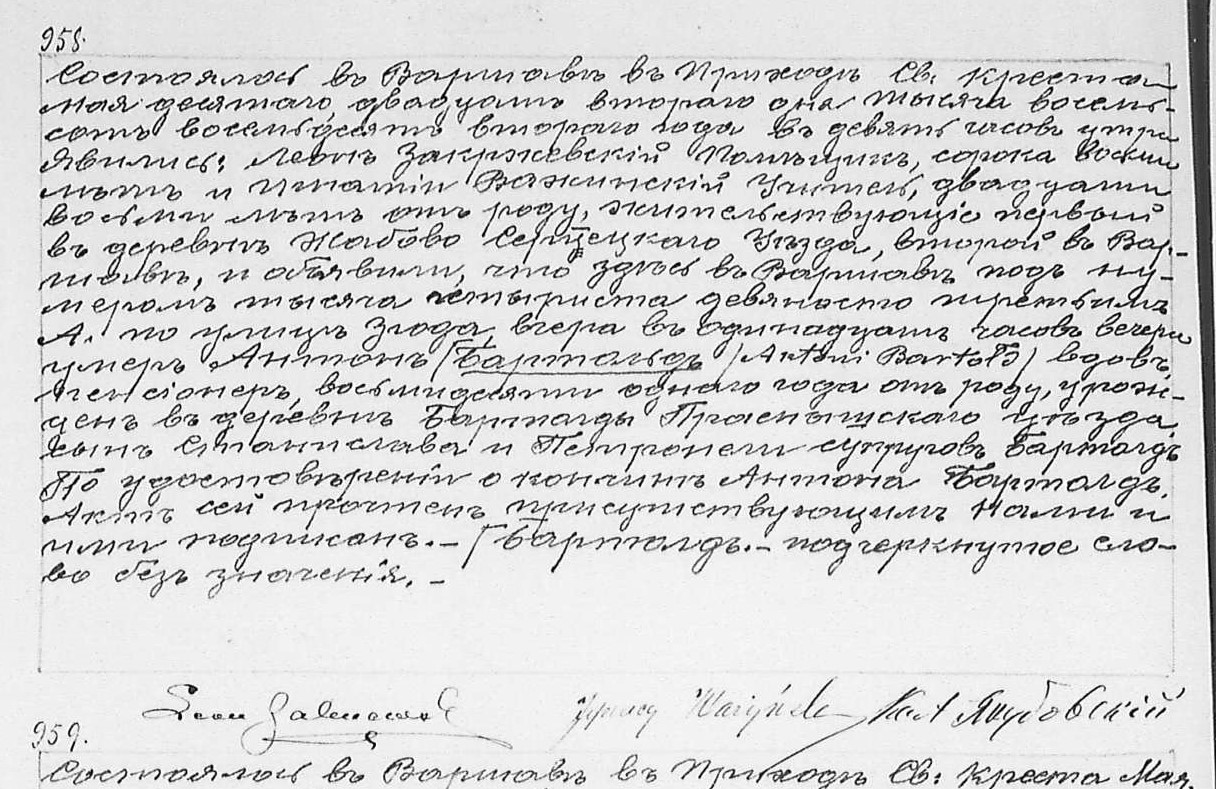 958.
Состоялось въ Варшавѣ въ Приходѣ Св. Креста
мая десятаго, двадцать втораго дня тысяча восемь-
сотъ восемьдесятъ втораго года въ девять часовъ утра
Явились: Леонъ Закржевскій Помѣщикъ, сорока восьми
лѣтъ и Игнатій Важинскій Учитель, двадцати
восьми лѣтъ отъ роду, жительствующіе первый
въ деревнѣ Жабово Серпецкаго Уѣзда, второй въ Вар-
шавѣ, и объявили, что здѣсь въ Варшавѣ подъ ну-
меромъ тысяча четыриста девяносто третьимъ
А. по улицѣ Згода, вчера въ одинадцать часовъ вечера
умеръ Антонъ Бартольдъ /Antoni Bartołd/ вдовъ,
пенсіонеръ, восьмидесяти одного года отъ роду, урож-
денъ въ деревнѣ Бартолды Праснышскаго уѣзда
сынъ Станислава и Петронели супруговъ Бартолдъ
По удостовѣреніи о кончинѣ Антона Бартолдъ.
Актъ сей прочтенъ присутствующимъ Нами и
ими подписанъ.— Бартолдъ.— подчеркнутое сло-
во безъ значенія.—
Leon Zakrzewski
959.
Состоялось въ Варшавѣ въ Приходѣ Св: Креста Мая,